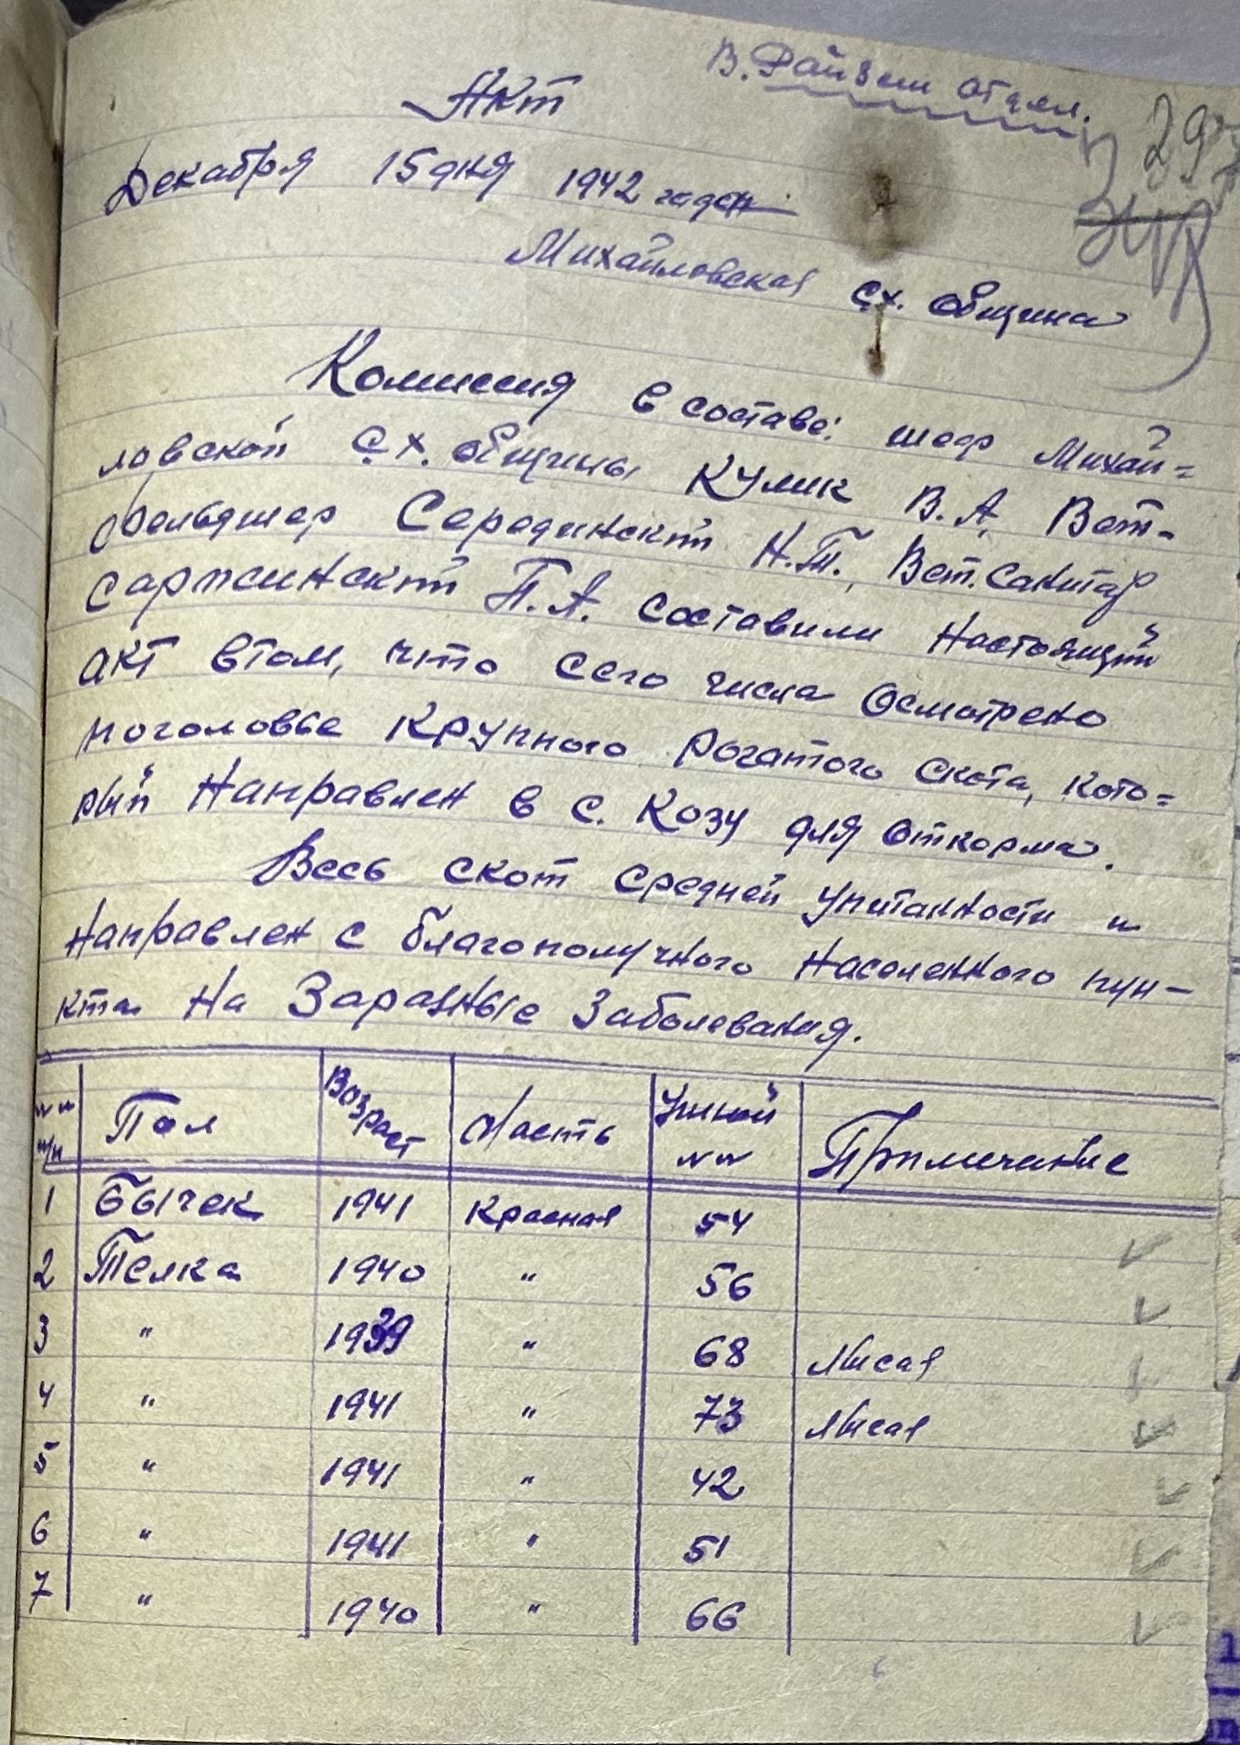 В. Райзем отдел.
297
Акт
Декабря 15 дня 1942 года
Михайловская сх. община
Комиссия в составе: шеф Михай=
ловской сх. общины Кулик В.А, Вет-
фельдшер Серединский Н.Т., Вет.санитар
Саржинский П.А. составили настоящий
акт втом, что сего числа осмотрено
поголовье крупного рогатого скота, кото=
рый направлен в с. Козу для откорма.
Весь скот средней упитанности и
направлен с благополучного населенного пун-
кта на заразные заболевания.
№№ п/п Пол Возраст Масть Ушной №№ Примечание
1 Бычек 1941 Красная 54
2 Телка 1940 " 56
3 " 1939 " 68 лысая
4 " 1941 " 73 лысая
5 " 1941 " 42
6 " 1941 " 51
7 " 1940 " 66